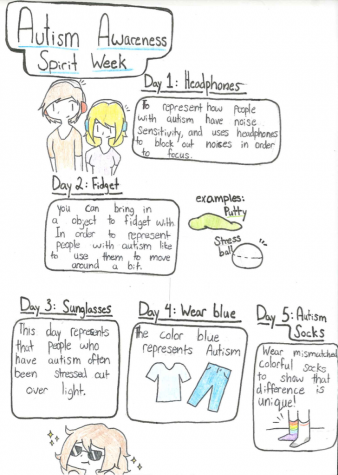 Autism Awareness
Spirit Week
Day 1: Headphones
To represent how people
with autism have noise
sensitivity, and uses headphones
to block out noises in order
to focus.
Day 2: Fidget
you can bring in
a object to fidget with
In order to represent
people with autism like
to use them to move
around a bit.
examples:
Putty
Stress
ball
Day 3: Sunglasses
This day represents
that people who
have autism often
been stressed out
over light.
Day 4: Wear blue
The color blue
represents Autism
Day 5: Autism
Socks
Wear mismatched
colorful socks
to show that
difference is
unique!